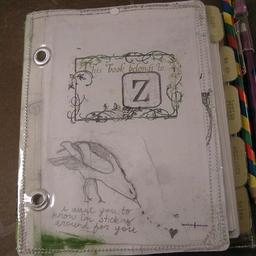 This book belongs to
Z
i want you to
know i'm sticking
around for you